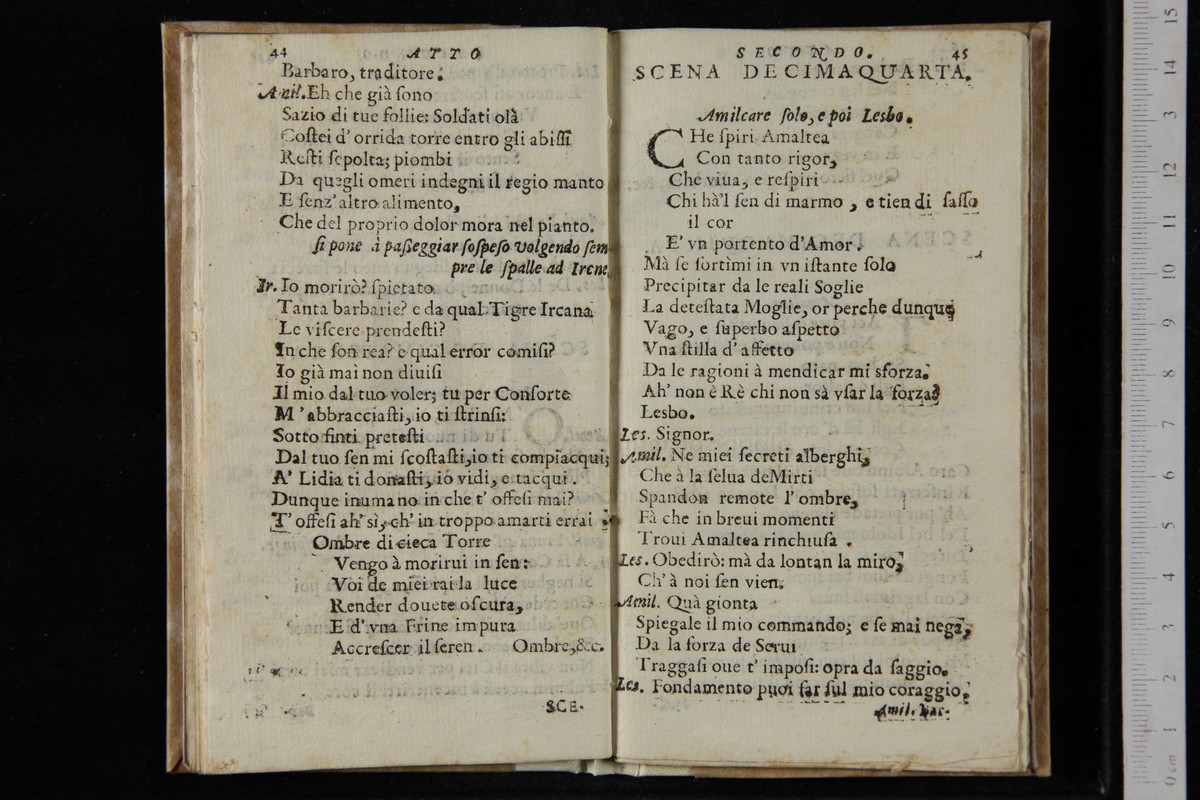 44 ATTO
Barbaro, traditore.
Amil. Eh che già ſono
Sazio di tue follie: Soldati olà
Coſtei d' orrida torre entro gli abiſſi
Reſti ſepolta; piombi
Da quegli omeri indegni il regio manto
E ſenz' altro alimento,
Che del proprio dolor mora nel pianto.
ſi pone à paſſeggiar ſoſpeſo volgendo ſem
pre le ſpalle ad Irene.
Ir. Io morirò? ſpietato
Tanta barbarie? e da qual Tigre Ircana
Le viſcere prendeſti?
In che ſon rea? e qual error comiſi?
Io già mai non diuiſi
Il mio dal tuo voler; tu per Conſorte
M' abbracciaſti, io ti ſtrinſi:
Sotto finti preteſti
Dal tuo ſen mi ſcoſtaſti, io ti compiacqui;
A' Lidia ti donaſti, io vidi, e tacqui.
Dunque inumano in che t' offeſi mai?
T' offeſi ah' sì, ch' in troppo amarti errai
Ombre di cieca Torre
Vengo à morirui in ſen:
Voi de miei rai la luce
Render douete oſcura,
E d' vna Frine impura
Accreſcer il ſeren. Ombre, &c.
SCE-
SECONDO. 45
SCENA DECIMAQUARTA.
Amilcare ſolo, e poi Lesbo.
CHe ſpiri Amaltea
Con tanto rigor,
Che viua, e reſpiri
Chi hà'l ſen di marmo, e tien di ſaſſo
il cor
E' vn portento d'Amor.
Mà ſe ſortìmi in vn iſtante ſolo
Precipitar da le reali Soglie
La deteſtata Moglie, or perche dunque
Vago, e ſuperbo aſpetto
Vna ſtilla d' affetto
Da le ragioni à mendicar mi sforza.
Ah' non è Rè chi non sà vſar la forza?
Lesbo.
Les. Signor.
Amil. Ne miei ſecreti alberghi,
Che à la ſelua de Mirti
Spandon remote l' ombre,
Fà che in breui momenti
Troui Amaltea rinchiuſa.
Les. Obedirò: mà da lontan la miro,
Ch' à noi ſen vien.
Amil. Quà gionta
Spiegale il mio commando; e ſe mai nega,
Da la forza de Serui
Traggaſi oue t' impoſi: opra da ſaggio.
Les. Fondamento puoi far ſul mio coraggio.
Amil. Bar-